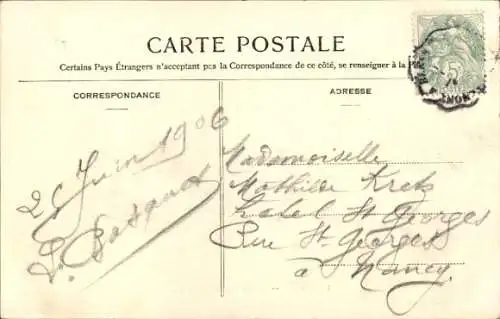 CARTE POSTALE
Certains Pays Étrangers n'acceptant pas la Correspondance de ce côté, se renseigner à la
CORRESPONDANCE
ADRESSE
Juin 1906
Mademoiselle
Mathilde
St Georges
Rue St Georges
à Nancy
5